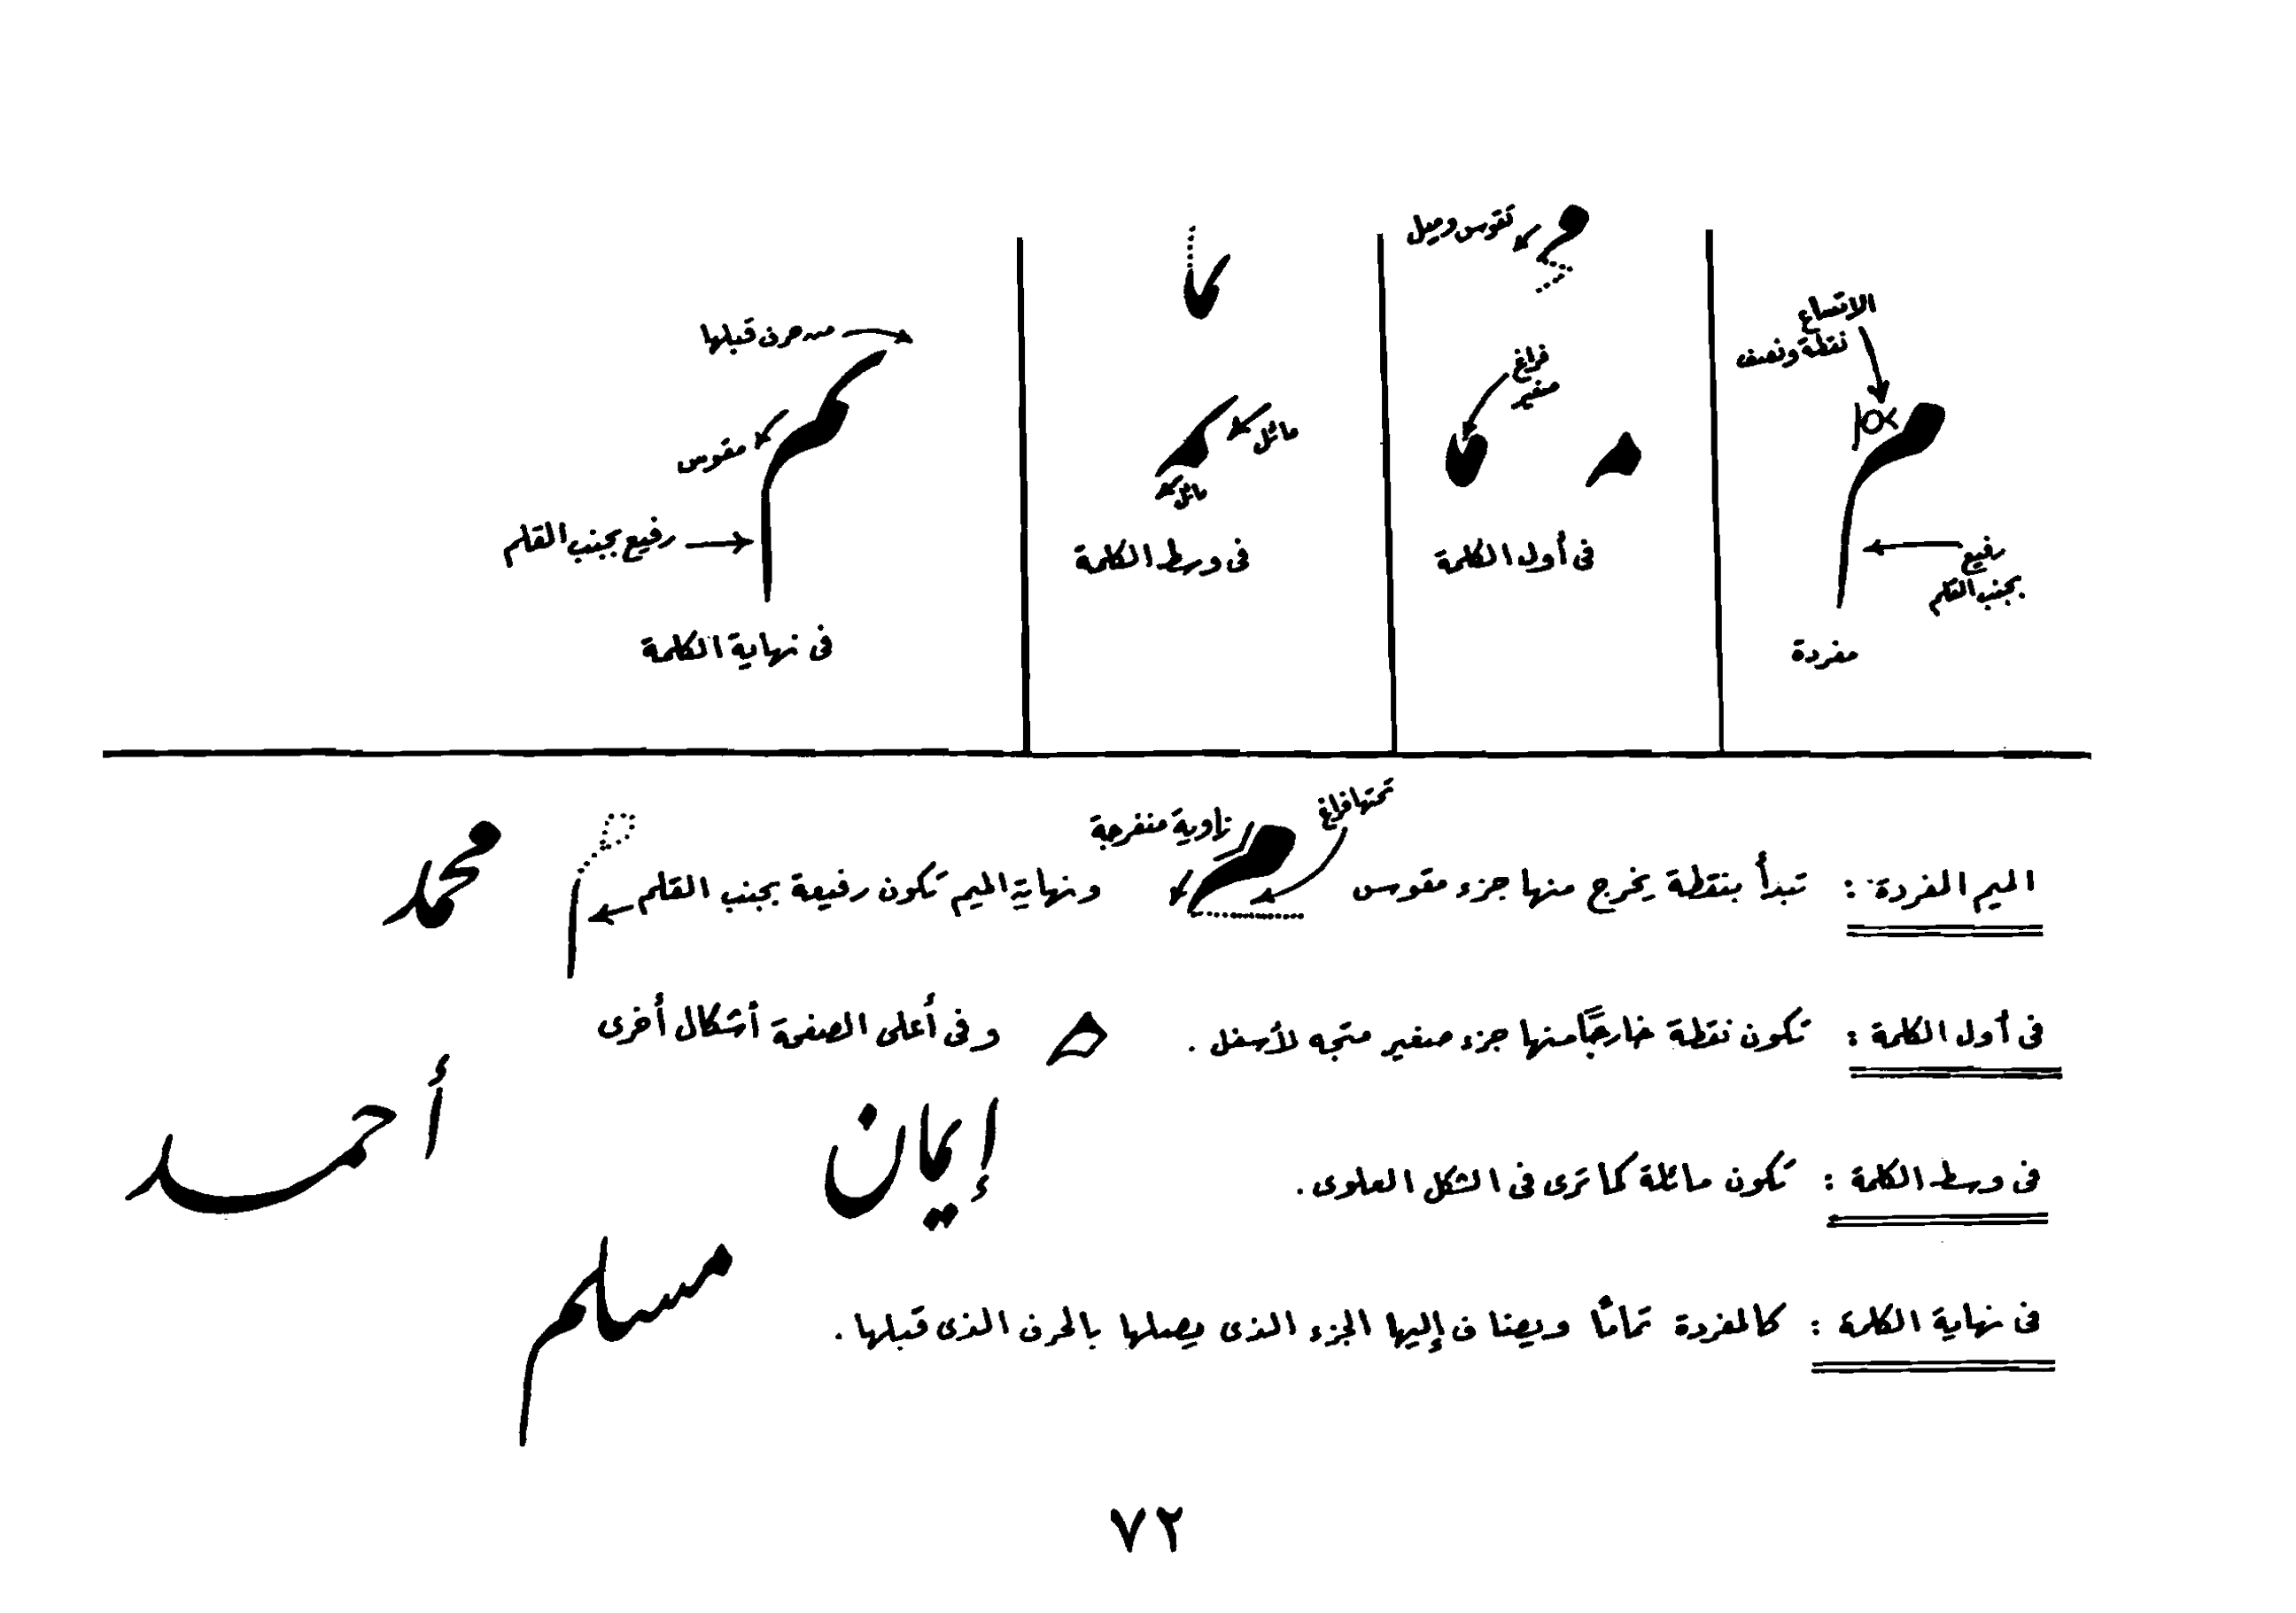 الاتساع
نقطة ونصف
م
رفيع
بجنب القلم
مفردة
تقوس وميل
فراغ
صغير
فى أول الكلمة
مائل
مائل
فى وسط الكلمة
من حرف قبلها
مقوس
رفيع بجنب القلم
فى نهاية الكلمة
الميم المفردة : تبدأ بنقطة يخرج منها جزء مقوس
تحتها فراغ
زاوية منفرجة
ونهاية الميم تكون رفيعة بجنب القلم
محمد
فى أول الكلمة : تكون نقطة خارجًا منها جزء صغير متجه لأسفل . وفى أعلى الصفحة أشكال أخرى
أحمد
فى وسط الكلمة : تكون مائلة كما ترى فى الشكل العلوى .
إيمان
فى نهاية الكلمة : كالمفردة تمامًا ويضاف إليها الجزء الذى يصلها بالحرف الذى قبلها .
مسلم
٧٢